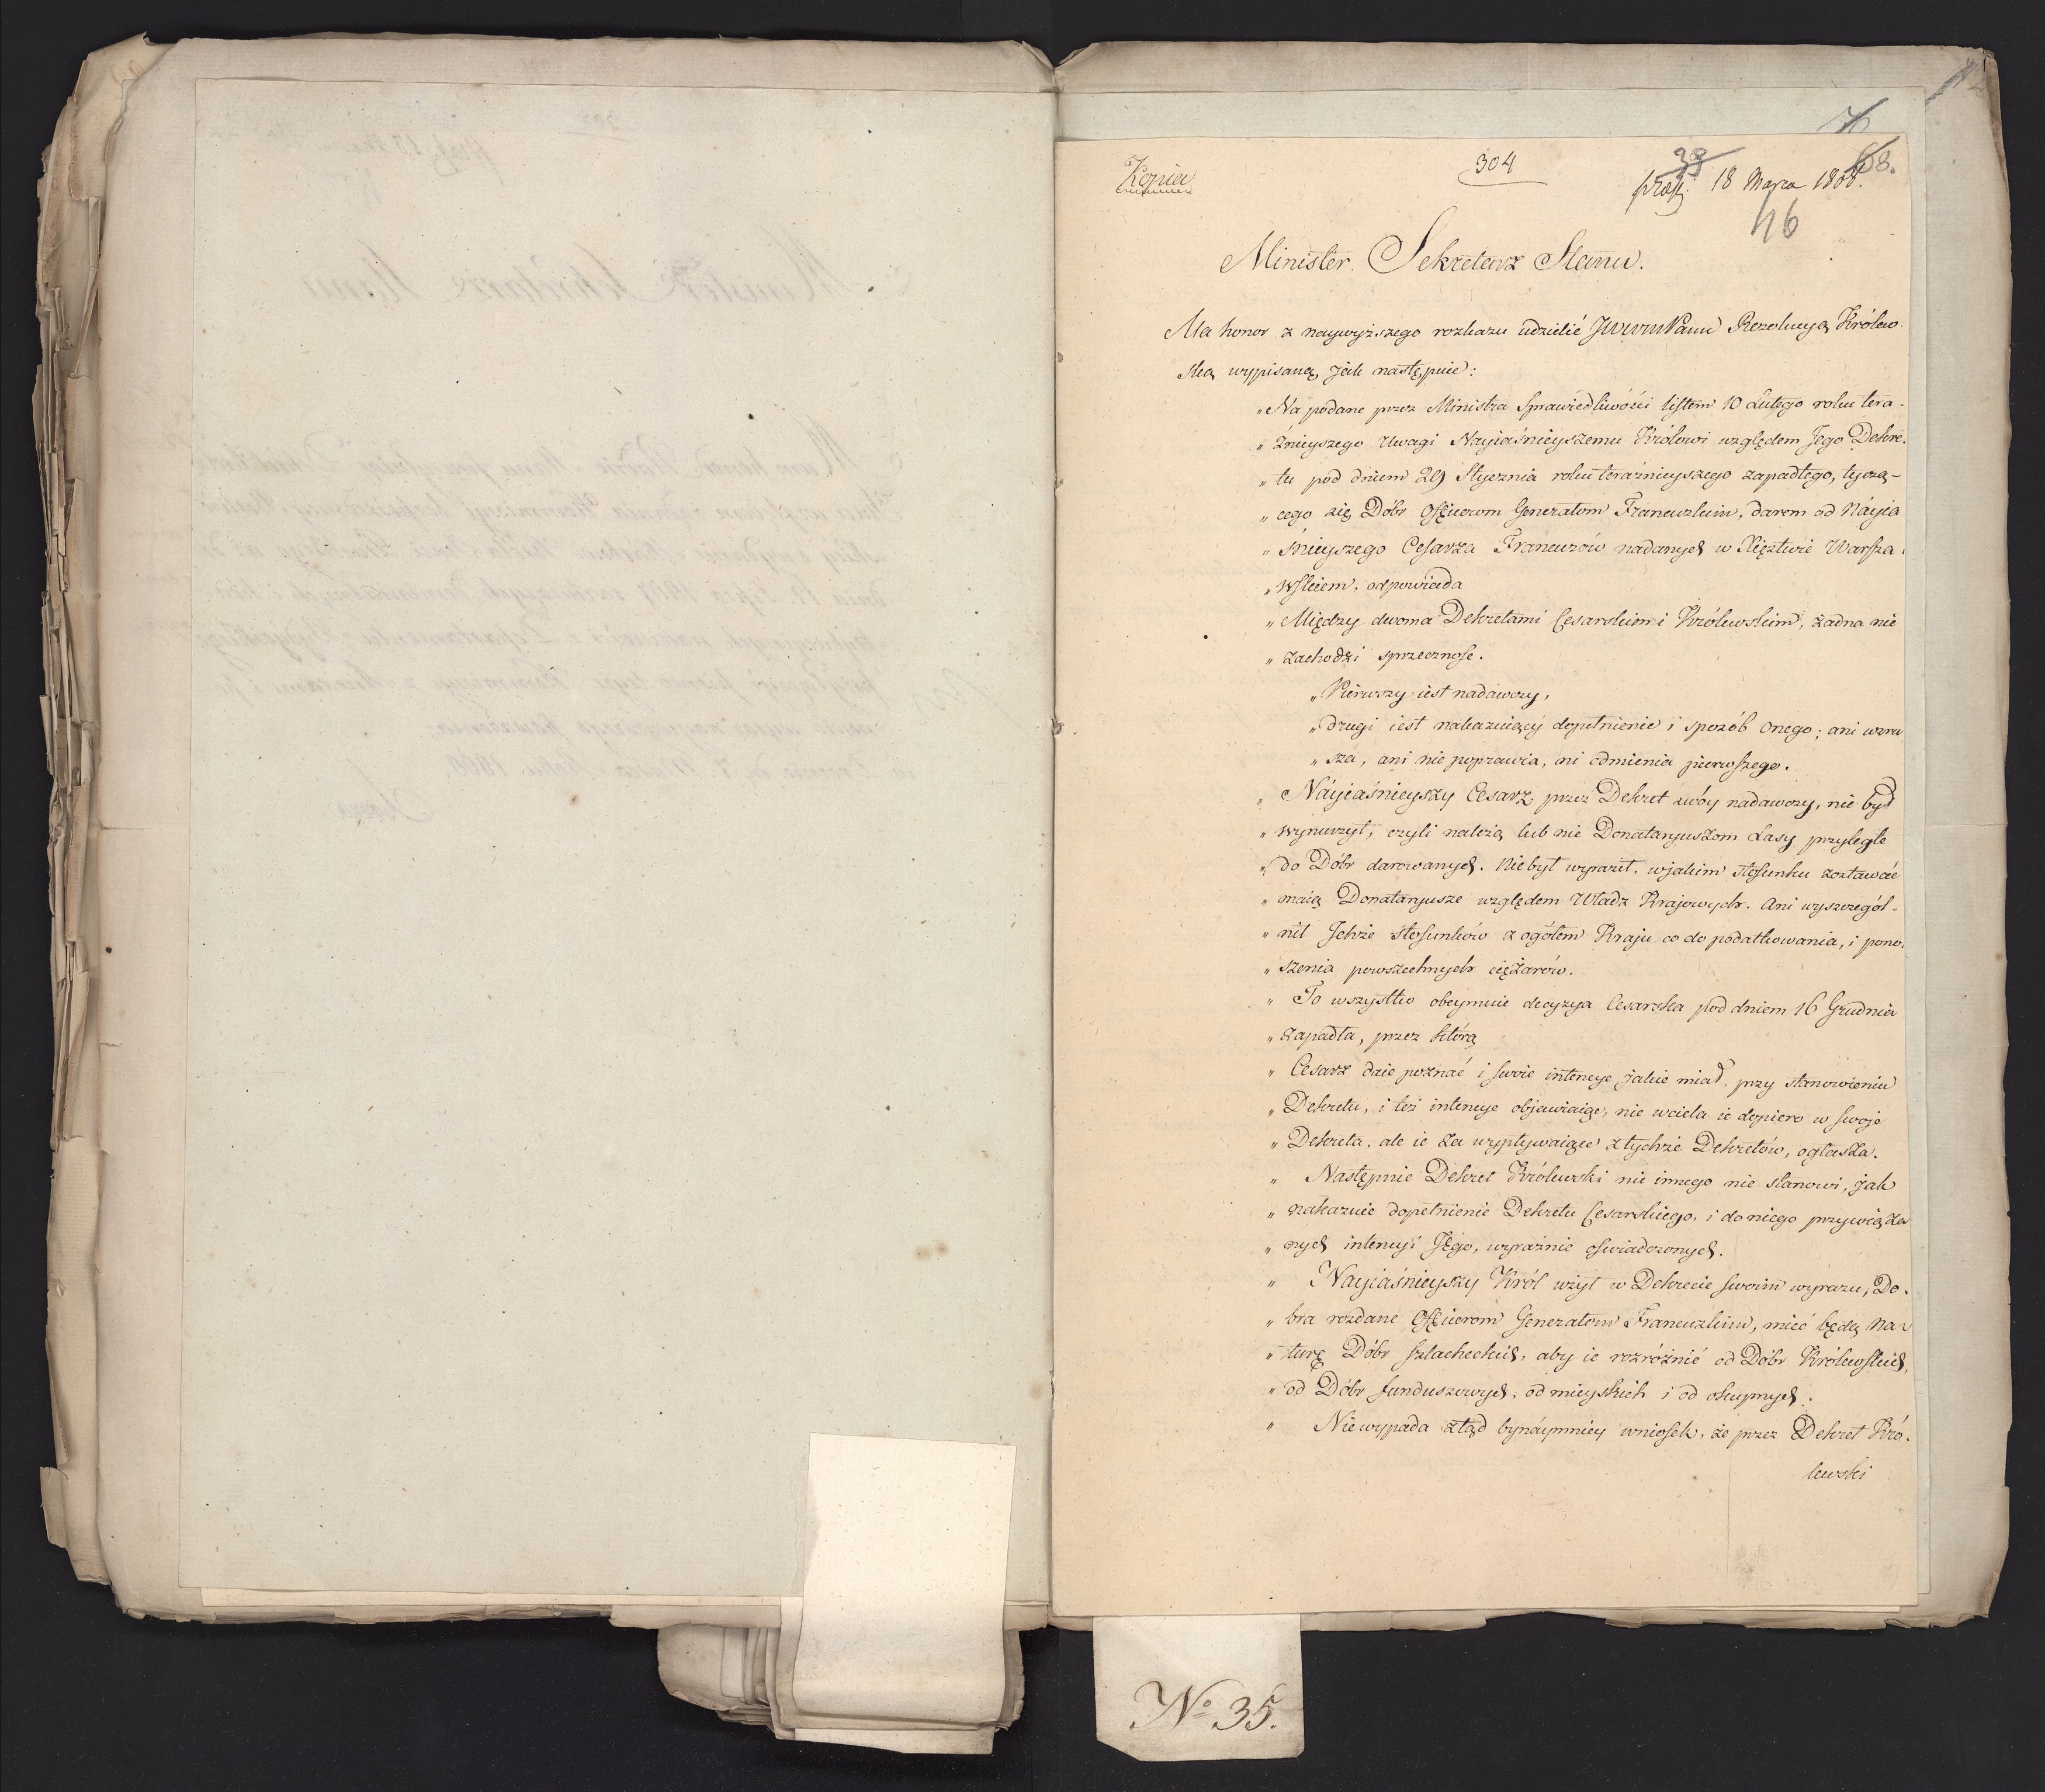 Kopia
304
38
præs. 18 Marca 1808.
68.
46
Minister Sekretarz Stanu.
Ma honor z naywyższego rozkazu udzielić JWWmPanu Rezolucyą Królew
ską wypisaną jak następuie:
„Na podane przez Ministra Sprawiedliwości listem 10 Lutego roku tera-
„źnieyszego Uwagi Nayiaśnieyszemu Królowi względem Jego Dekre-
„tu pod dniem 29 Stycznia roku teraźnieyszego zapadłego, tycząc-
„cego się Dóbr Officerom Generałom Francuzkim, darem od Náyia
„śnieyszego Cesarza Francuzów nadanych w Xięztwie Warsza-
„wskiem, odpowiada
„Między dwoma Dekretami Cesarskim i Królewskim, żadna nie
„zachodzi sprzeczność.
„Pierwszy iest nadawczy,
„drugi iest nakazuiący dopełnienie i sposób onego; ani wzru
„sza, ani nie poprawia, ni odmienia pierwszego.
„Náyiaśnieyszy Cesarz przez Dekret swóy nadawczy, nie był
„wynurzył, czyli należą lub nie Donataryuszom Lasy przyległe
„do Dóbr darowanych. Nie był wyraził, w jakim stosunku zostawać
„maią Donataryusze względem Władz Krajowych. Ani wyszczegól-
„nił Jchże stosunków z ogółem Kraju co do podatkowania, i pono-
„szenia powszechnych ciężarów.
„To wszystko obeymuie decyzya Cesarska pod dniem 16 Grudnia
„zapadła, przez którą
„Cesarz daie poznać i swoie intencye jakie miał, przy stanowieniu
„Dekretu, i też intencye objawiaiąc, nie wciela ie dopiero w swoje
„Dekreta, ale ie za wypływaiące z tychże Dekretów, ogłasza.
„Następnie Dekret Królewski nic innego nie stanowi, jak
„nakazuie dopełnienie Dekretu Cesarskiego, i do niego przywiąza
„nych intencyi Jego, wyraźnie oświadczonych.
„Nayiaśnieyszy Król użył w Dekrecie swoim wyrazu, Do-
„bra rozdane Officerom Generałom Francuzkim, mieć będą na-
„turę Dóbr szlacheckich, aby ie rozróżnić od Dóbr Królewskich,
„od Dóbr funduszowych, od mieyskich i od okupnych.
„Nie wypada ztąd bynáymniey wniosek, że przez Dekret Kró-
lewski
No 35.